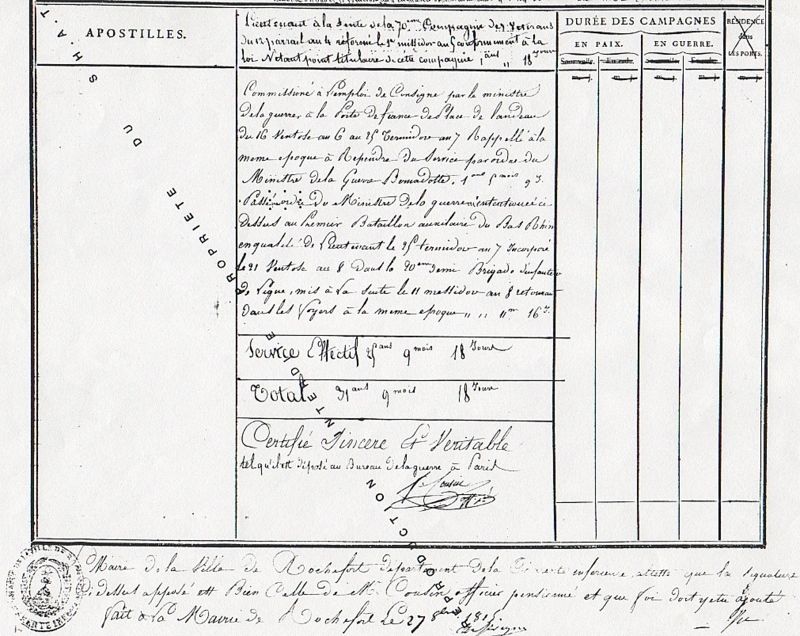 APOSTILLES.
Lieutenant à la suite de la 70.eme Compagnie des Veterans
du 12 prairial an 4 réformé le 1er messidor an 5 conformement à la
loi N'etant point titulaire de cette compagnie 1 ans " 18 Jours
DURÉE DES CAMPAGNES
EN PAIX. EN GUERRE.
RÉSIDENCE
dans
LES PORTS.
Commissioné à l'emploi de Consigne par le ministre
de la guerre, à la Porte de france de Place de Landau
du 16 Ventose an 6 au 25 Termidor an 7 Rappellé à la
meme epoque à Reprendre du Service par ordre du
Ministre de la Guerre Bernadotte. 1 ans 5 mois 9 J.
Passé du Ministre de la guerre
dessus au Premier Bataillon auxilaire du Bas Rhin
en qualité de Lieutenant le 25 termidor an 7 Incorporé
le 21 Ventose an 8 dans la 20eme Demi Brigade d'infanterie
de Ligne, mis à la Suite le 11 messidor an 8 retournant
dans les foyers à la meme epoque " " 11 m 16 J.
Service Effectif 25 ans 9 mois 18 Jours
Total 31 ans 9 mois 18 Jours
Certifié Sincere Et Veritable
tel qu'il est déposé au Bureau de la guerre à Paris
Cousin
PROPRIETE DU SHAT
REPRODUCTION INTERDITE
Maire de la Ville de Rochefort departement de la Charente inferieure, atteste que la signature
ci dessus apposé est Bien Celle de Mr. Cousin officier pensionné et que foi doit y etre ajouté
fait à la Mairie de Rochefort Le 27